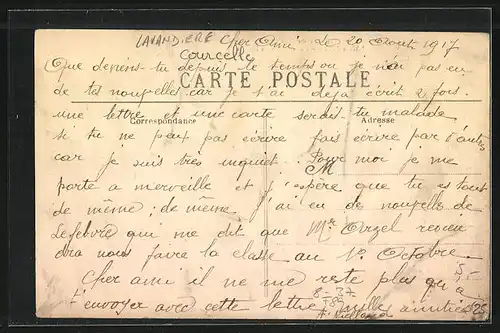 LAVANDIERE Cher Ami Le 20 Aout 1917
Courcelle
Que deviens-tu depuis le temps ou je n'ai pas eu
CARTE POSTALE
de tes nouvelles car je t'ai deja écrit 2 fois.
une lettre et une carte serais-tu malade
Correspondance Adresse
si tu ne peux pas ecrire fais écrire par d'autres
car je suis très inquiet. Pour moi je me
M
porte a merveille et j'espère que tu es tout
de même; de même j'ai eu de nouvelle de
Lefebvre qui me dit que Mr
dra nous faire la classe au 1o Octobre.
Cher ami il ne me reste plus qu'a
t'envoyer avec cette lettre amitiés